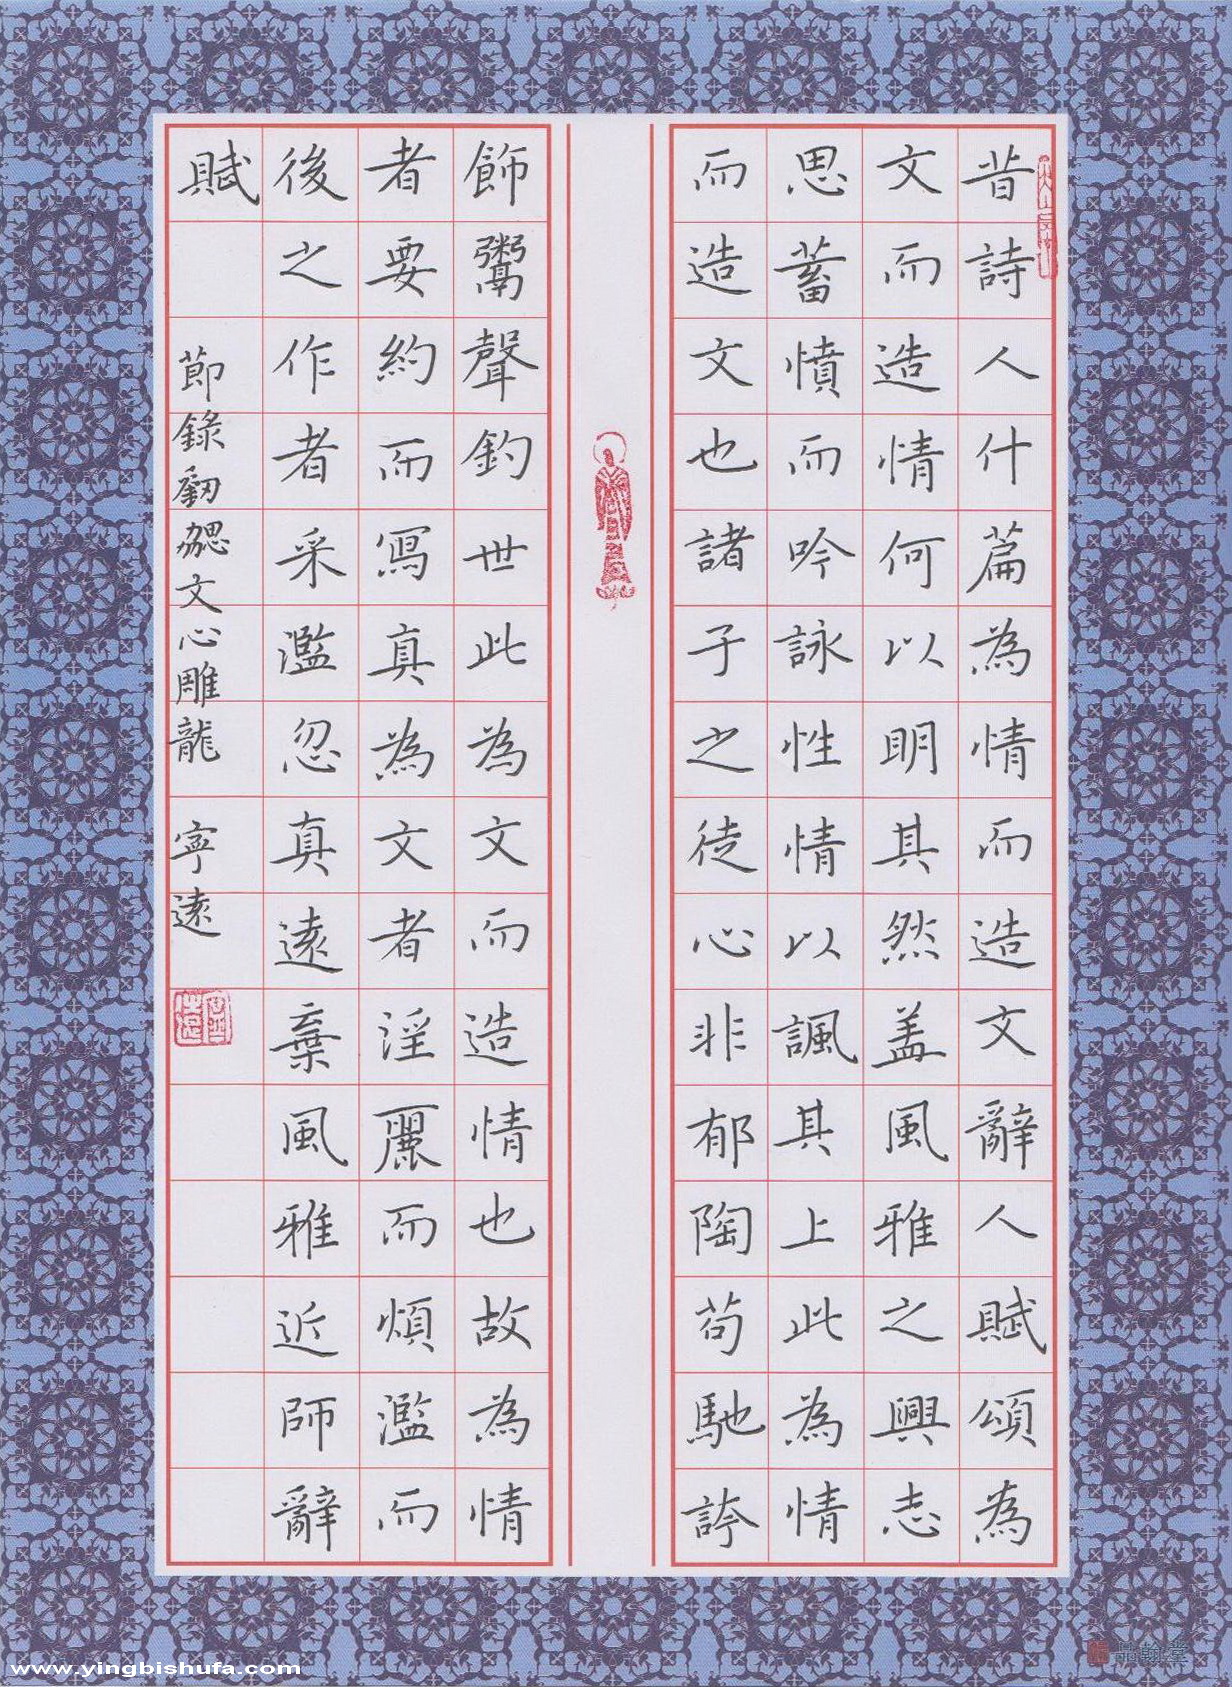 昔詩人什篇為情而造文辭人賦頌為
文而造情何以明其然盖風雅之興志
思蓄憤而吟詠性情以諷其上此為情
而造文也諸子之徒心非郁陶苟馳誇
飾鬻聲釣世此為文而造情也故為情
者要約而寫真為文者淫麗而煩濫而
後之作者采濫忽真遠棄風雅近師辭
賦
節錄劉勰文心雕龍 寧遠
www.yingbishufa.com